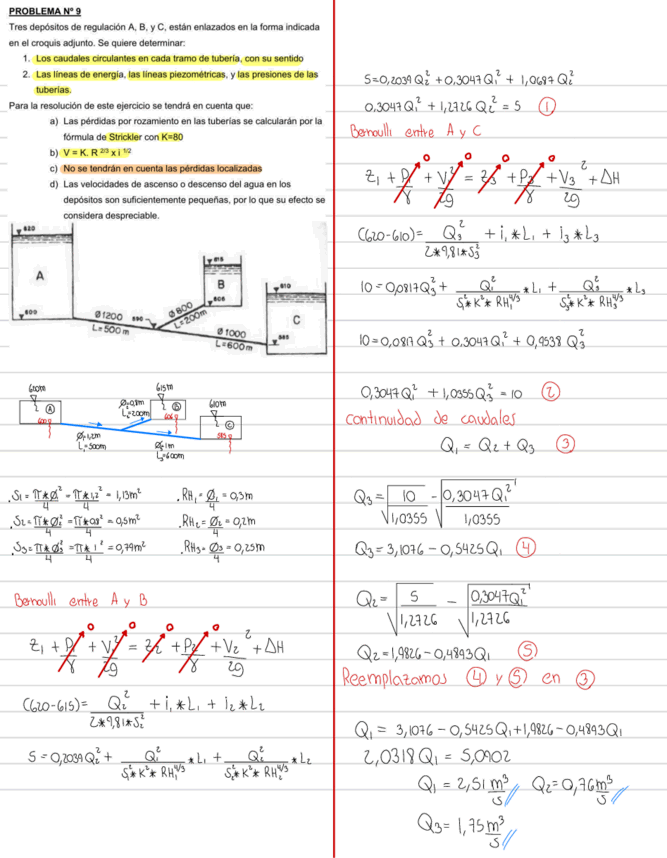 PROBLEMA Nº 9
Tres depósitos de regulación A, B, y C, están enlazados en la forma indicada
en el croquis adjunto. Se quiere determinar:
1. Los caudales circulantes en cada tramo de tubería, con su sentido
2. Las líneas de energía, las líneas piezométricas, y las presiones de las
tuberías.
Para la resolución de este ejercicio se tendrá en cuenta que:
a) Las pérdidas por rozamiento en las tuberías se calcularán por la
fórmula de Strickler con K=80
b) V = K. R 2/3 x i 1/2
c) No se tendrán en cuenta las pérdidas localizadas
d) Las velocidades de ascenso o descenso del agua en los
depósitos son suficientemente pequeñas, por lo que su efecto se
considera despreciable.
620
A
600
Ø1200
L=500m
590
Ø800
L=200m
615
B
606
Ø1000
L=600m
610
C
585
600m
A
600
Ø=1,2m
L1=500m
Ø=0,8m
L2=200m
615m
B
606
Ø=1m
L3=600m
610m
C
585
.S1=π*Ø²/4=π*1,2²/4=1,13m² .RH1=Ø1/4=0,3m
.S2=π*Ø2²/4=π*0,8²/4=0,5m² .RH2=Ø2/4=0,2m
.S3=π*Ø3²/4=π*1²/4=0,79m² .RH3=Ø3/4=0,25m
Bernoulli entre A y B
Z1+P1/γ+V1²/2g=Z2+P2/γ+V2²/2g+ΔH
(620-615)=Q2²/2*9,81*S2²+i1*L1+i2*L2
5=0,2039Q2²+Q1²/S1²*K²*RH1^4/3*L1+Q2²/S2²*K²*RH2^4/3*L2
5=0,2039Q2²+0,3047Q1²+1,0687Q2²
0,3047Q1²+1,2726Q2²=5 (1)
Bernoulli entre A y C
Z1+P1/γ+V1²/2g=Z3+P3/γ+V3²/2g+ΔH
(620-610)=Q3²/2*9,81*S3²+i1*L1+i3*L3
10=0,0817Q3²+Q1²/S1²*K²*RH1^4/3*L1+Q3²/S3²*K²*RH3^4/3*L3
10=0,0817Q3²+0,3047Q1²+0,9538Q3²
0,3047Q1²+1,0355Q3²=10 (2)
continuidad de caudales
Q1=Q2+Q3 (3)
Q3=√10/1,0355-√0,3047Q1²/1,0355
Q3=3,1076-0,5425Q1 (4)
Q2=√5/1,2726-√0,3047Q1²/1,2726
Q2=1,9826-0,4893Q1 (5)
Reemplazamos (4) y (5) en (3)
Q1=3,1076-0,5425Q1+1,9826-0,4893Q1
2,0318Q1=5,0902
Q1=2,51 m³/s Q2=0,76 m³/s
Q3=1,75 m³/s